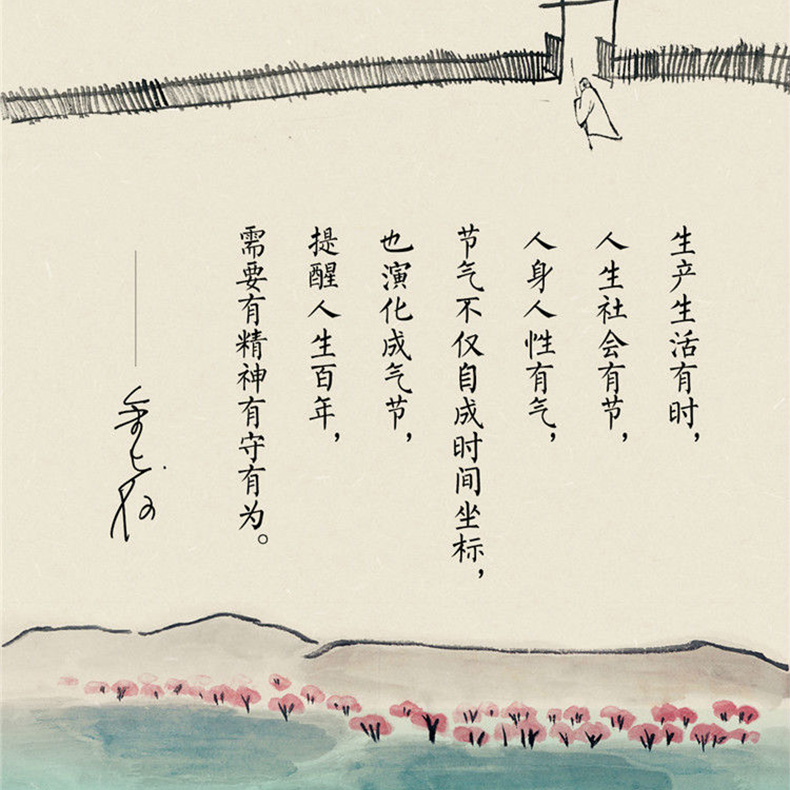 生产生活有时，
人生社会有节，
人身人性有气，
节气不仅自成时间坐标，
也演化成气节，
提醒人生百年，
需要有精神有守有为。